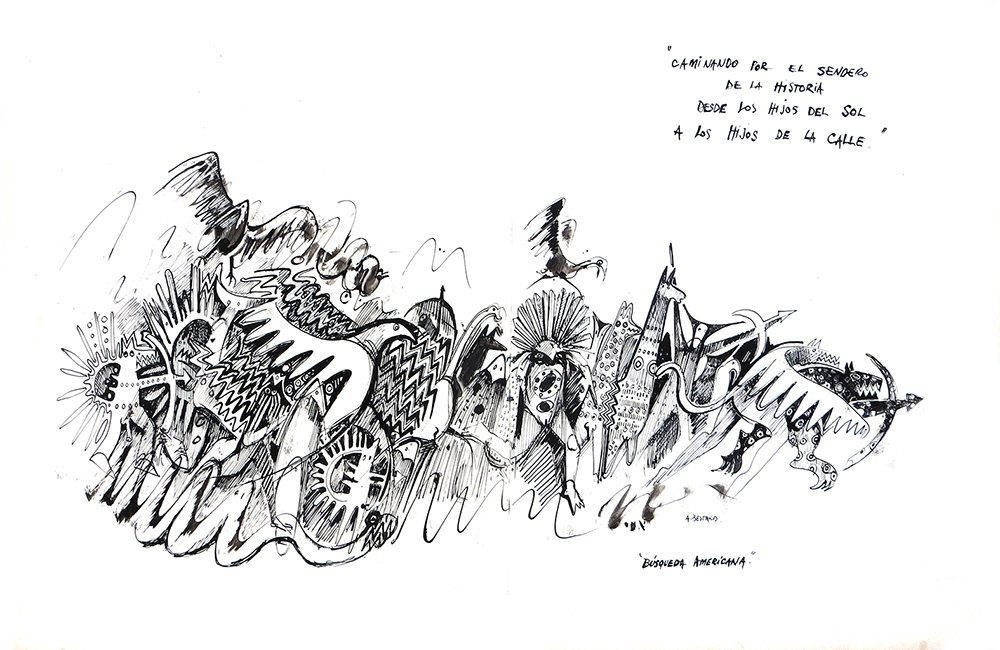 "CAMINANDO POR EL SENDERO
DE LA HISTORIA
DESDE LOS HIJOS DEL SOL
A LOS HIJOS DE LA CALLE."
"BÚSQUEDA AMERICANA."